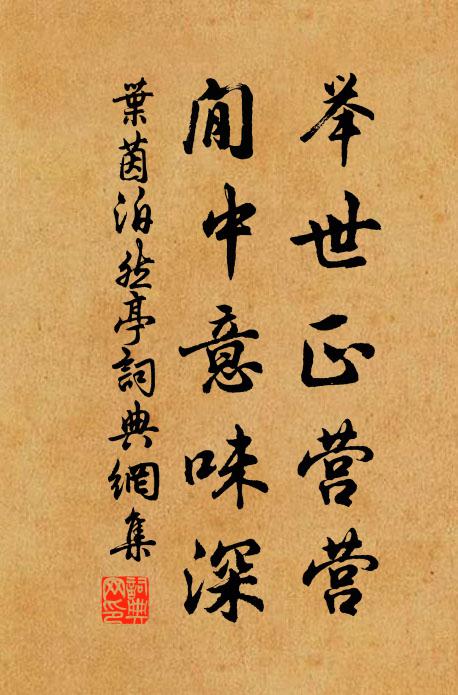 举世正营营
閒中意味深
葉茵泊然亭詞典網集
詞典网印